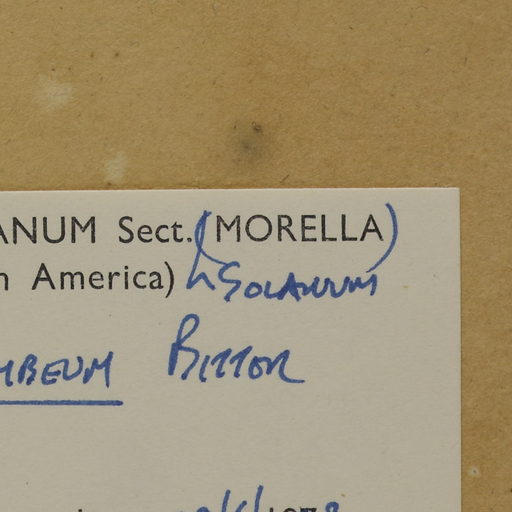 ANUM Sect. (MORELLA)
n America) Solanum
MBEUM Bitter